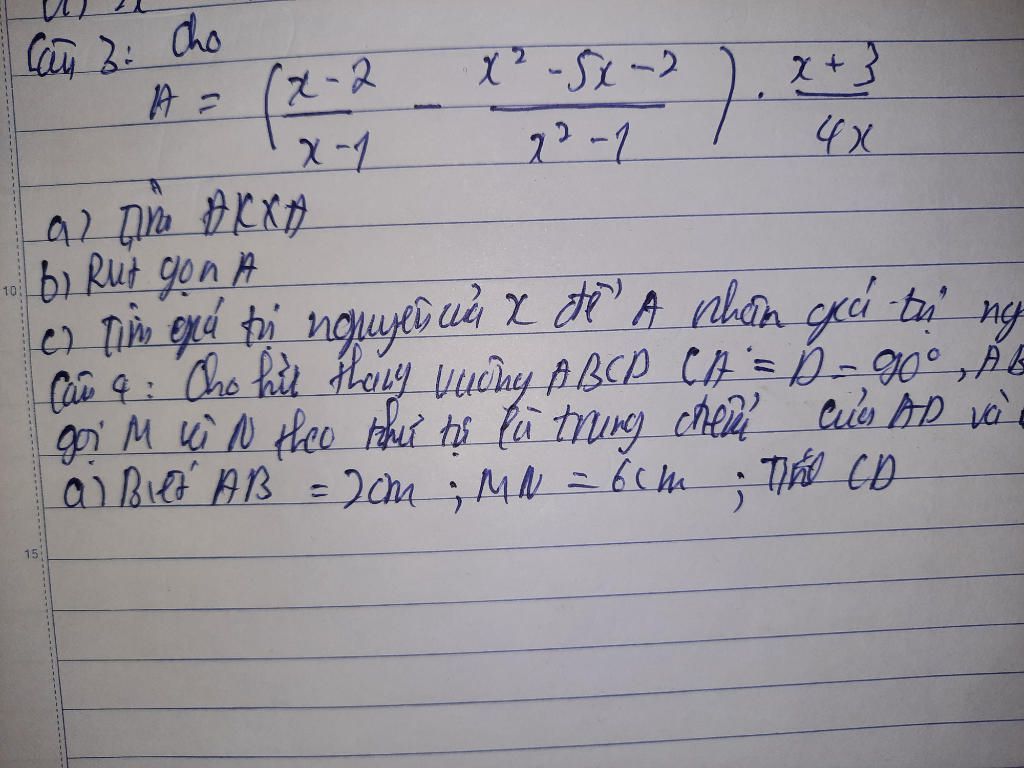 Câu 3: Cho
A = (x - 2 / x - 1 - x² - 5x - 2 / x² - 1) . x + 3 / 4x
a) Tìm ĐKXĐ
b) Rút gọn A
10
c) Tìm giá trị nguyên của x để A nhận giá trị ng
Câu 4: Cho hình thang vuông ABCD (A = D = 90°, AB
gọi M và N theo thứ tự là trung điểm của AD và
a) Biết AB = 2cm ; MN = 6cm ; Tính CD
15